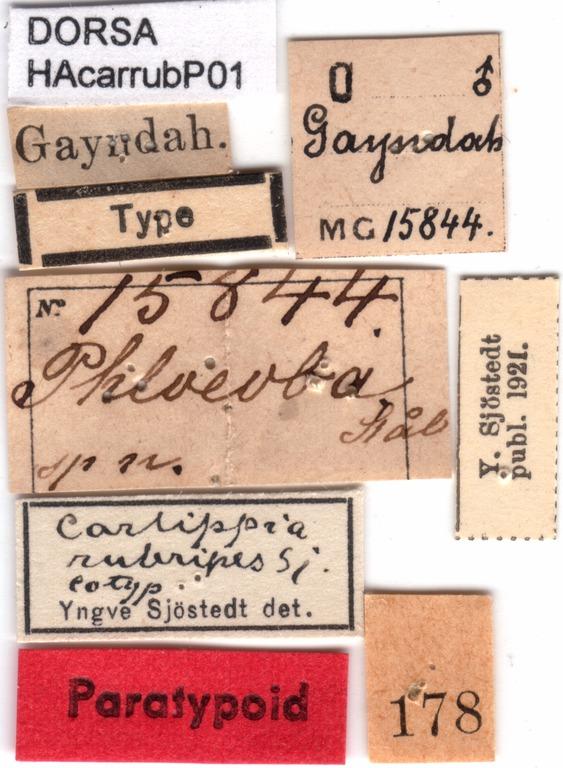 DORSA
HAcarrubP01
Gayndah.
Type
♂
Gayndah
MG 15844.
No. 15844.
Phloeoba
Stål
sp n.
Y. Sjöstedt
publ. 1921.
Carlippia
rubripes Sj.
Cotyp.
Yngve Sjöstedt det.
Paratypoid
178